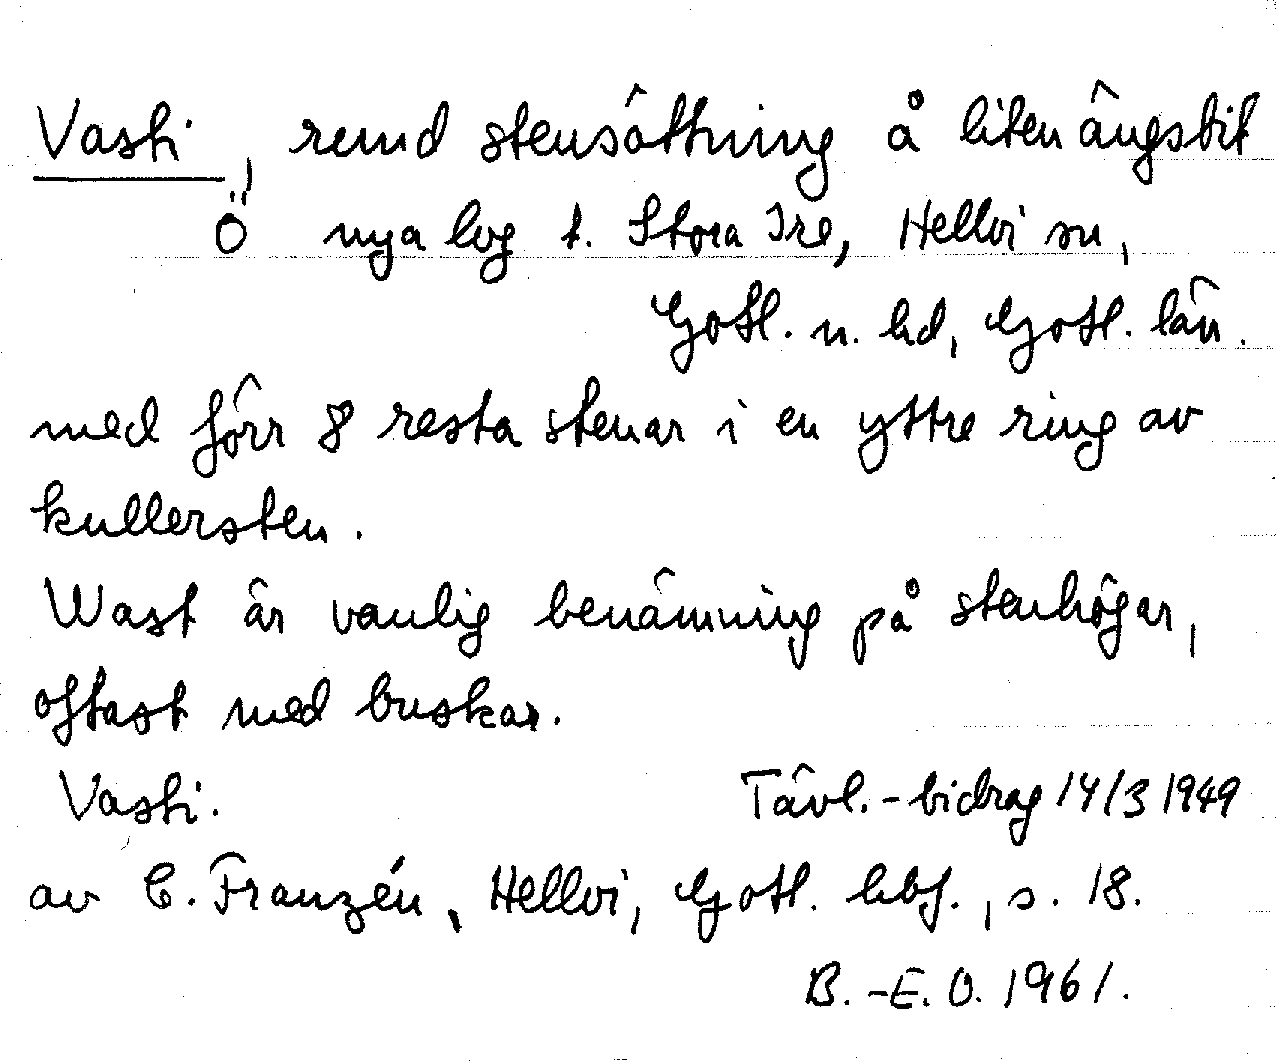 Vasti, rund stensättning å liten ängsbit
Ö nya lvg t. Stora Ire, Hellvi sn,
Gotl. n. hd, Gotl. län.
med förr 8 resta stenar i en yttre ring av
kullersten.
Wast är vanlig benämning på stenhögar,
oftast med buskar.
Vasti. Tävl.-bidrag 14/3 1949
av C. Franzén, Hellvi, Gotl. hbf., s. 18.
B.-E. O. 1961.